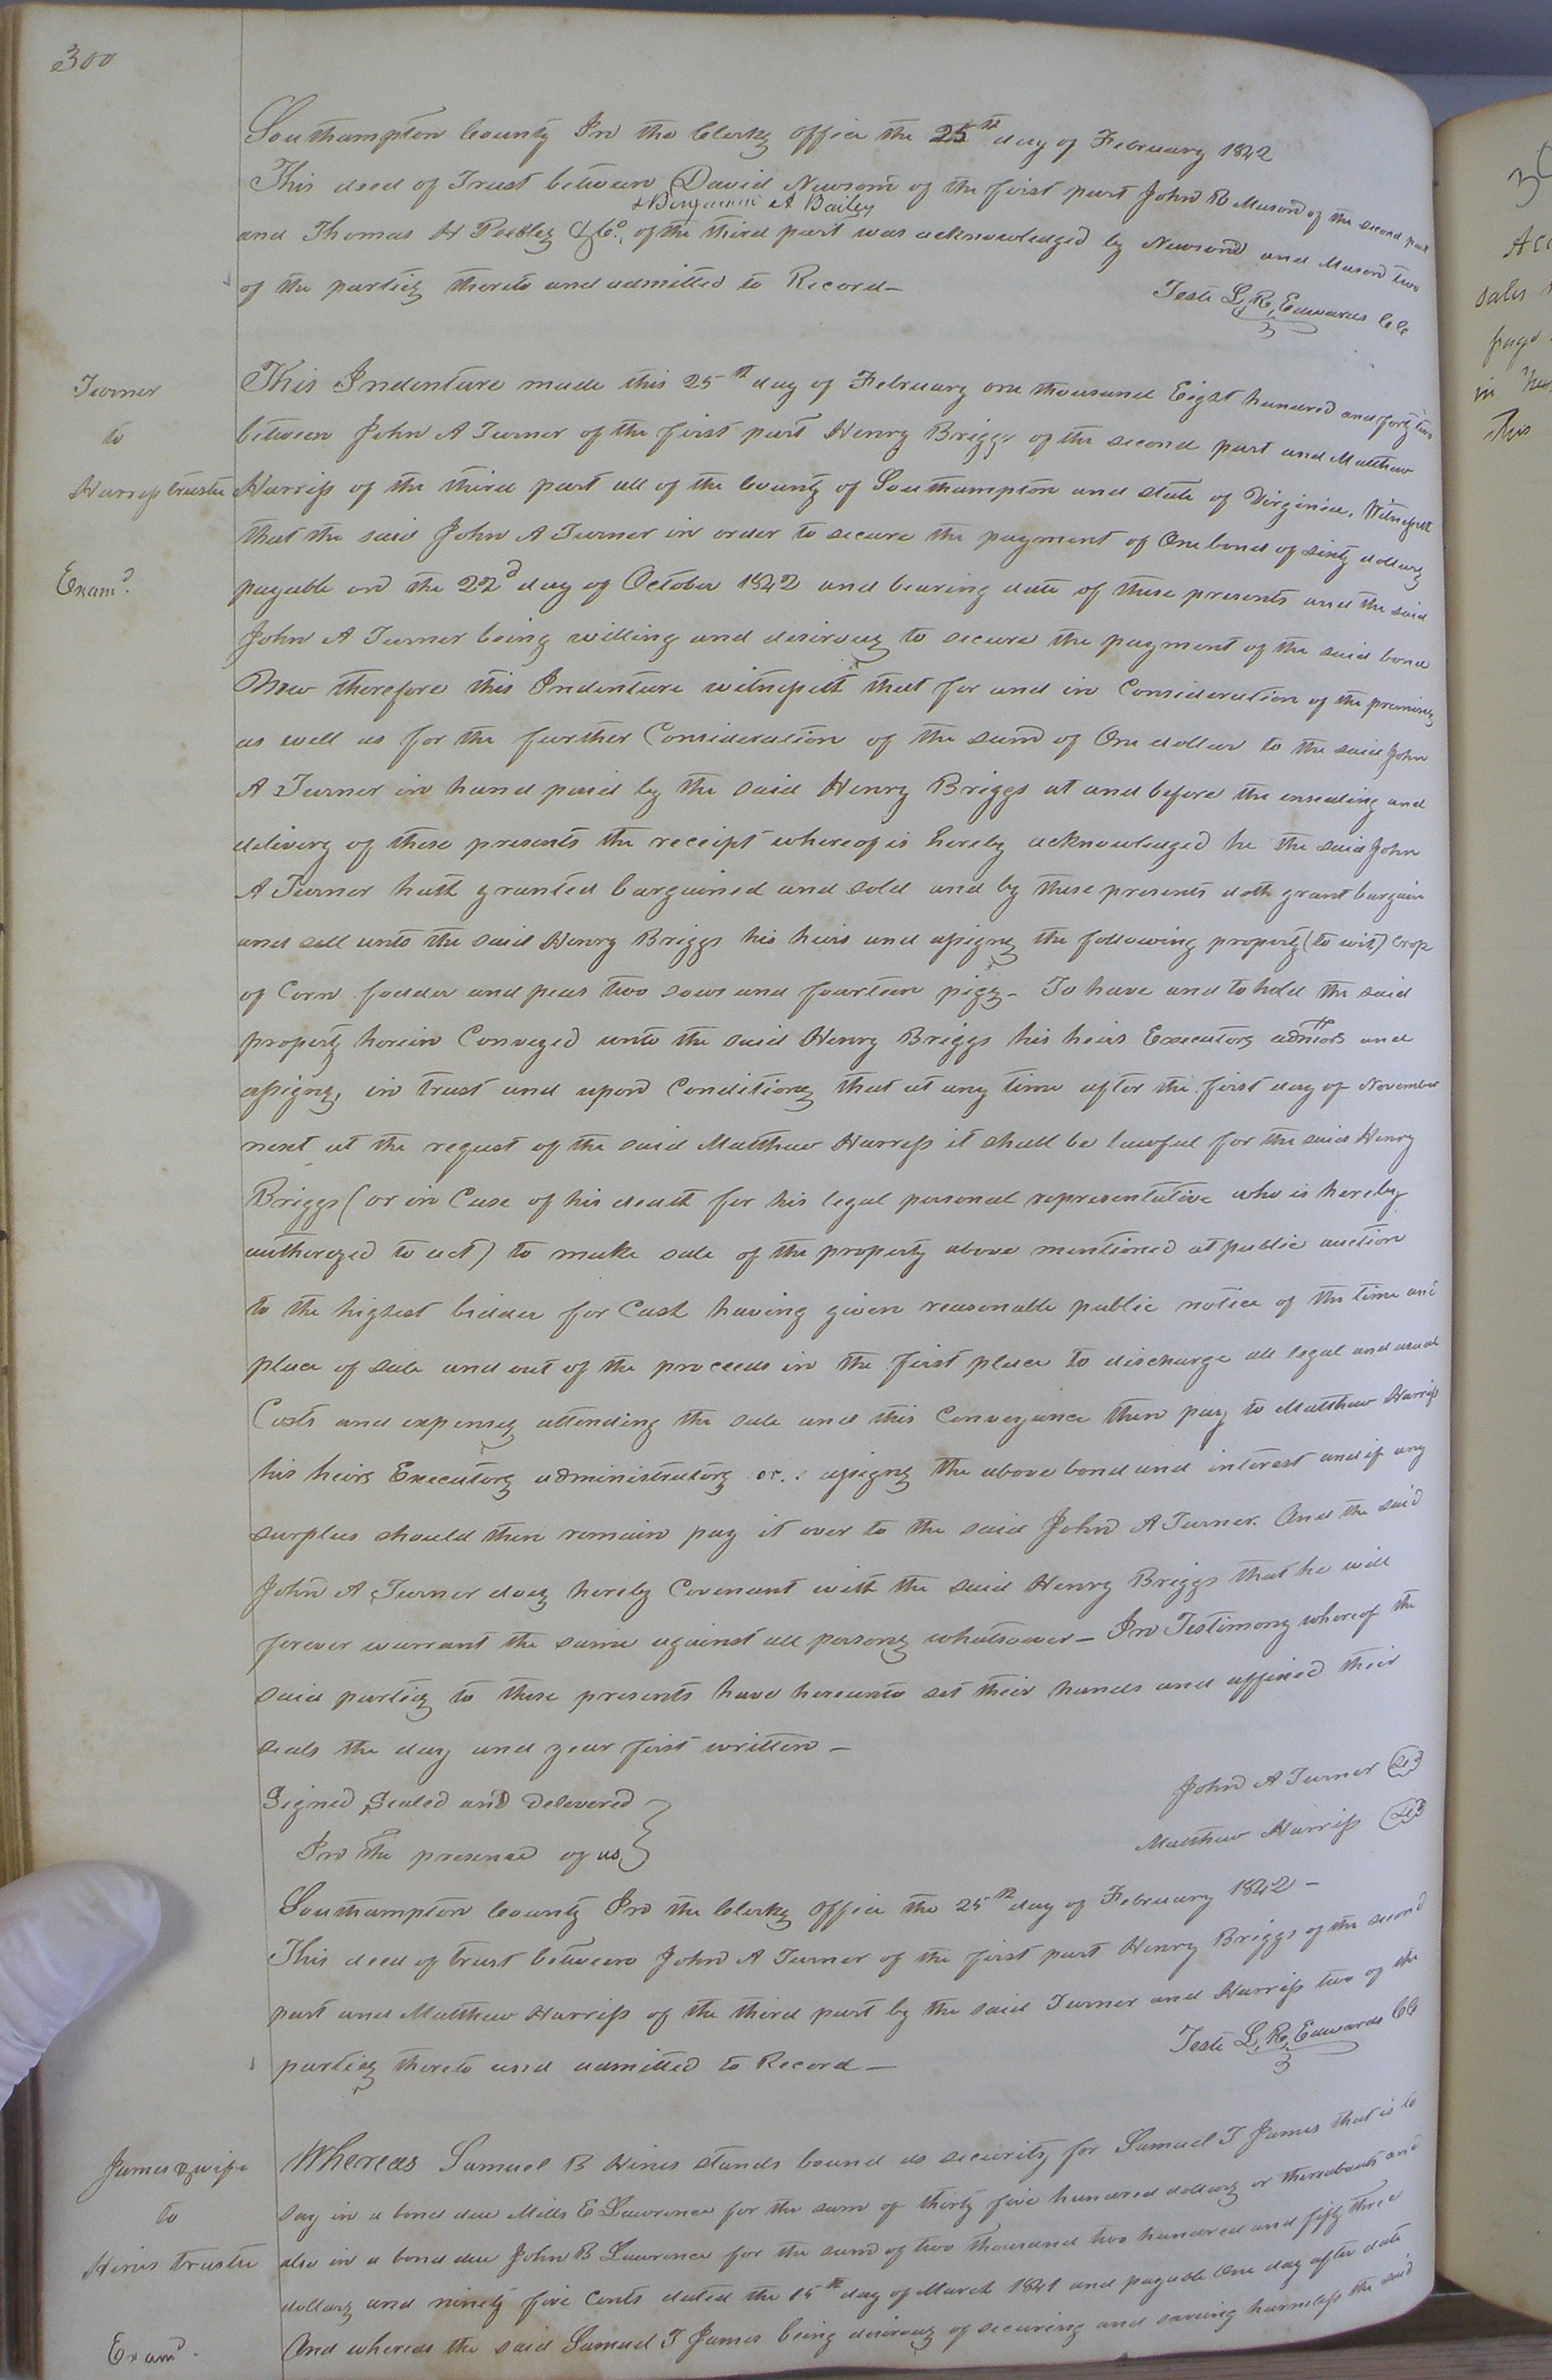 300
Southampton County In the Clerks office the 25th day of February 1842
This deed of Trust between David Newsom of the first part John R Mason of the second part
& Benjamin A Bailey
and Thomas H Peebles & Co., of the third part was acknowledged by Newsom and Mason two
of the parties thereto and admitted to Record—
Teste L. R. Edwards CC
Turner
to
Harriss trustee
Examd.
This Indenture made this 25th day of February one thousand Eight hundred and forty two
between John A Turner of the first part Henry Briggs of the second part and Matthew
Harriss of the third part all of the County of Southampton and state of Virginia. Witnesseth
that the said John A Turner in order to secure the payment of One bond of sixty dollars
payable on the 22d day of October 1842 and bearing date of these presents and the said
John A Turner being willing and desirous to secure the payment of the said bond
Now therefore this Indenture witnesseth that for and in Consideration of the premises
as well as for the further Consideration of the sum of One dollar to the said John
A Turner in hand paid by the said Henry Briggs at and before the ensealing and
delivery of these presents the receipt whereof is hereby acknowledged he the said John
A Turner hath granted bargained and sold and by these presents doth grant bargain
and sell unto the said Henry Briggs his heirs and assigns the following property (to wit) Crop
of Corn fodder and peas two sows and fourteen pigs— To have and to hold the said
property herein Conveyed unto the said Henry Briggs his heirs Executors admors and
assigns, in trust and upon Conditions that at any time after the first day of November
next at the request of the said Matthew Harriss it shall be lawful for the said Henry
Briggs (or in Case of his death for his legal personal representative who is hereby
autherized to act) to make sale of the property above mentioned at public auction
to the highest bidder for Cash having given reasonable public notice of the time and
place of sale and out of the proceeds in the first place to discharge all legal and usual
Costs and expenses attending the sale and this Conveyance then pay to Matthew Harriss
his heirs Executors administrators or assigns the above bond and interest and if any
surplus should then remain pay it over to the said John A Turner. And the said
John A Turner does hereby Covenant with the said Henry Briggs that he will
forever warrant the same against all persons whatsoever— In Testimony whereof the
said parties to these presents have hereunto set their hands and affixed their
seals the day and year first written—
Signed, Sealed and Delevered
In the presence of us
John A Turner
Matthew Harriss
Southampton County In the Clerks office the 25th day of February 1842—
This deed of trust between John A Turner of the first part Henry Briggs of the second
part and Matthew Harriss of the third part by the said Turner and Harriss two of the
parties thereto and admitted to Record—
Teste L. R. Edwards CC
James & wife
to
Hines trustee
Examd.
Whereas Samuel B Hines stands bound as security for Samuel T James that is to
say in a bond due Mills E Lawrence for the sum of thirty five hundred dollars or thereabouts and
also in a bond due John B Lawrence for the sum of two thousand two hundred and fifty three
dollars and ninety five Cents dated the 15th day of March 1841 and payable One day after date
And whereas the said Samuel T James being desirous of securing and saveing harmless the said